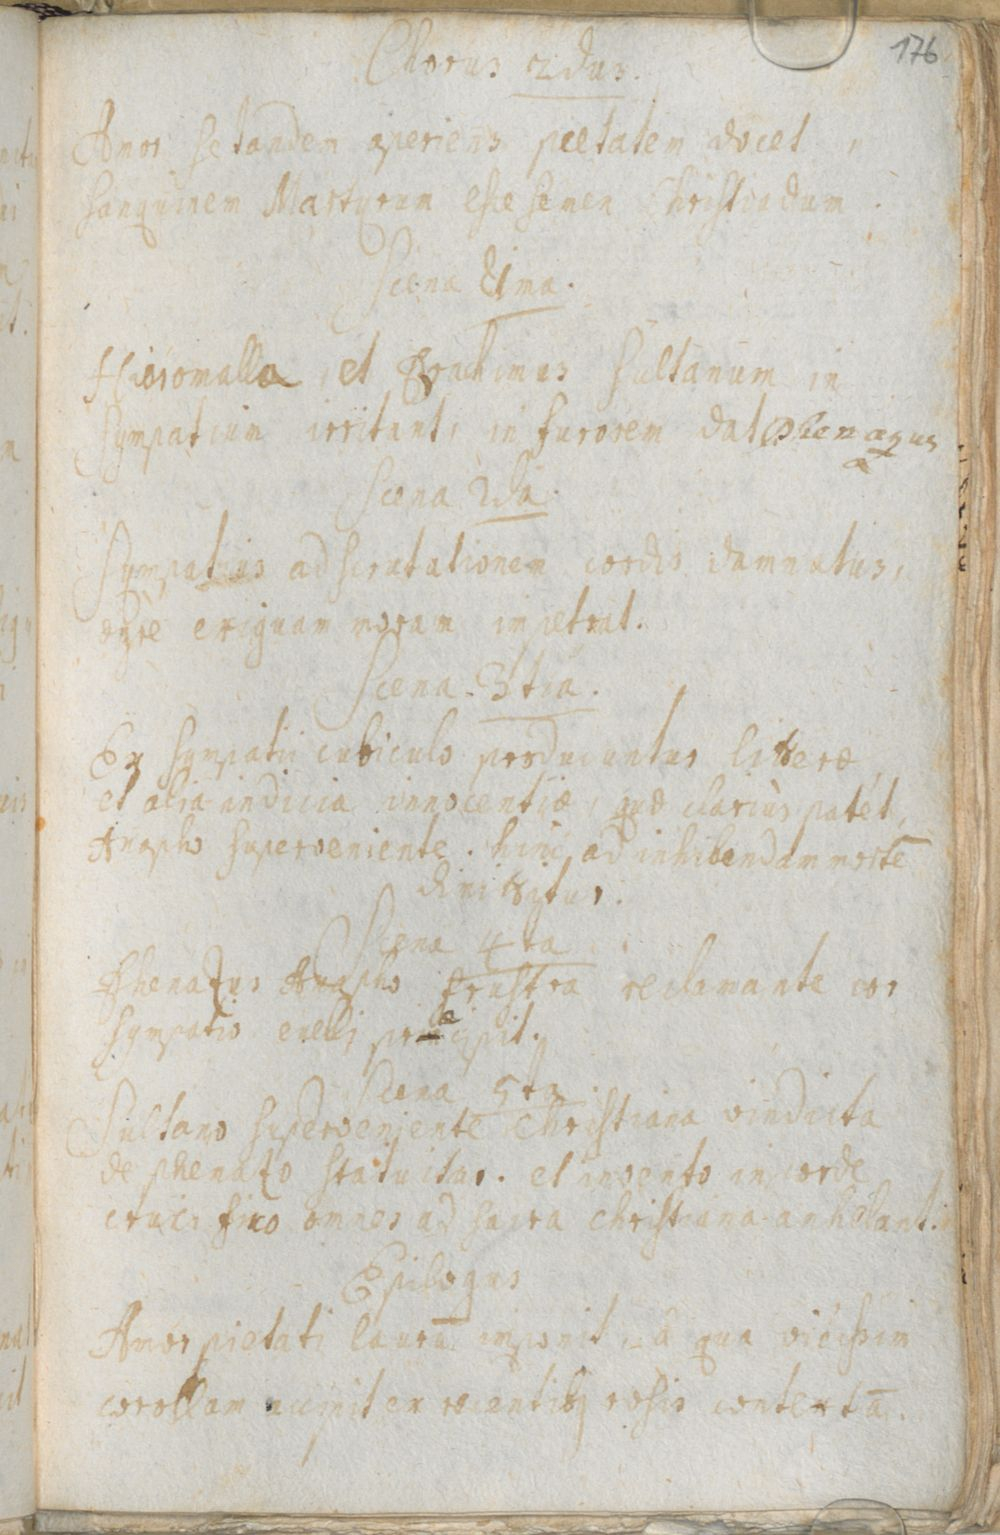 176
Chorus 2dus.
Amor se tandem aperiens pietatem docet
sanquinem Martyrum esse semen Christiadum.
Scena 1ma.
et Sultanum in
Sympatium irritant, in furorem dat
Scena 2da.
Sympatius ad scrutationem cordis damnatus,
ægre exiguam moram impetrat.
Scena 3tia.
Ex Sympatii cubiculo producuntur litteræ,
et alia indicia innocentiæ, quæ clariùs patét,
Araspho superveniente. hinc ad inhibendam mortē
dimittitur.
Scena 4ta
Phenazus Araspho frustra reclamante cor
Sympatio evelli præcipit.
Scena 5ta.
Sultano superveniente Christiana vindicta
de phenazo statuitur. et invento in corde
crucifixo omnes ad sacra christiana anhelant.
Epilogus
Amor pietati laurū imponit, a qua vicissim
corollam accipit ex rosis contextā.